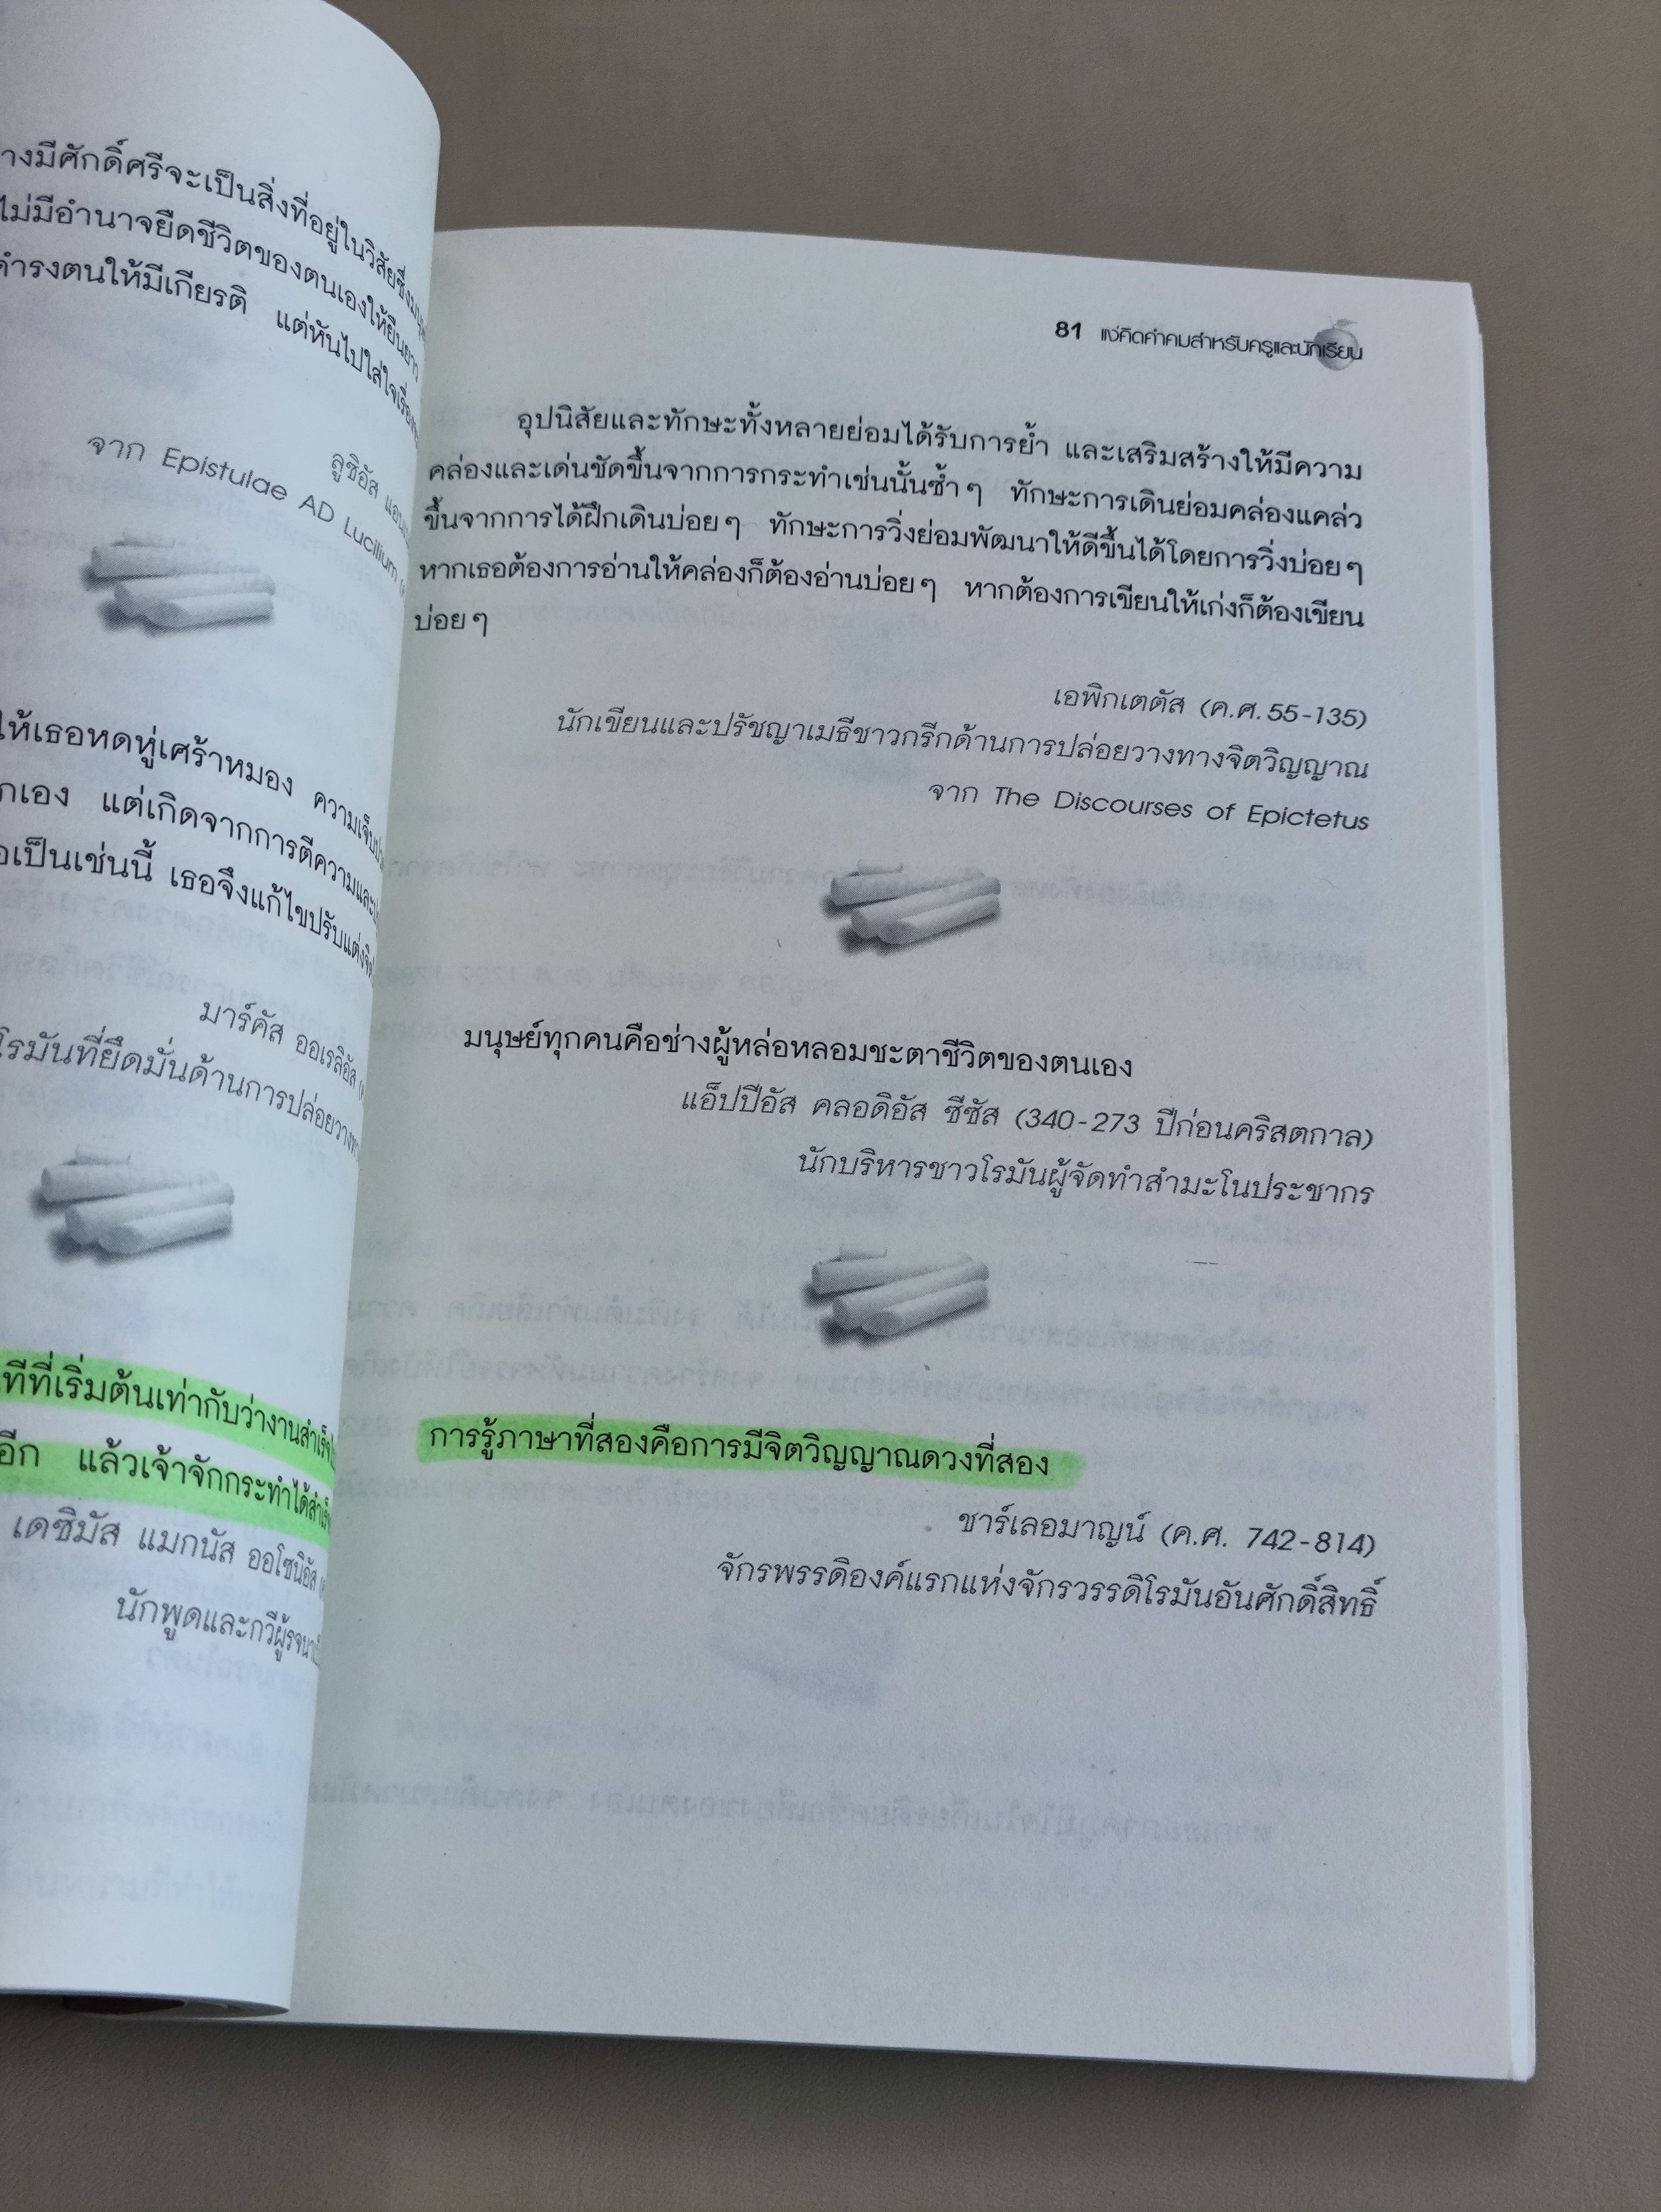 างมีศักดิ์ศรีจะเป็นสิ่งที่อยู่ในวิสัยซึ่ง
ไม่มีอำนาจยืดชีวิตของตนเองให้ยืนยาว
ดำรงตนให้มีเกียรติ แต่หันไปใส่ใจเรื่อง
ลูซิอัส
จาก Epistulae AD Lucilium
ให้เธอหดหู่เศร้าหมอง ความเจ็บ
กเอง แต่เกิดจากการตีความและ
อเป็นเช่นนี้ เธอจึงแก้ไขปรับแต่ง
มาร์คัส ออเรลิอัส
โรมันที่ยึดมั่นด้านการปล่อยวาง
ทีที่เริ่มต้นเท่ากับว่างานสำเร็จ
อีก แล้วเจ้าจักกระทำได้สำเร็จ
เดซิมัส แมกนัส ออโซนิอัส
นักพูดและกวีผู้รจนา
81 แง่คิดคำคมสำหรับครูและนักเรียน
อุปนิสัยและทักษะทั้งหลายย่อมได้รับการย้ำ และเสริมสร้างให้มีความ
คล่องและเด่นชัดขึ้นจากการกระทำเช่นนั้นซ้ำๆ ทักษะการเดินย่อมคล่องแคล่ว
ขึ้นจากการได้ฝึกเดินบ่อยๆ ทักษะการวิ่งย่อมพัฒนาให้ดีขึ้นได้โดยการวิ่งบ่อยๆ
หากเธอต้องการอ่านให้คล่องก็ต้องอ่านบ่อยๆ หากต้องการเขียนให้เก่งก็ต้องเขียน
บ่อยๆ
เอพิกเตตัส (ค.ศ.55-135)
นักเขียนและปรัชญาเมธีชาวกรีกด้านการปล่อยวางทางจิตวิญญาณ
จาก The Discourses of Epictetus
มนุษย์ทุกคนคือช่างผู้หล่อหลอมชะตาชีวิตของตนเอง
แอ็ปปีอัส คลอดิอัส ซีซัส (340-273 ปีก่อนคริสตกาล)
นักบริหารชาวโรมันผู้จัดทำสำมะโนประชากร
การรู้ภาษาที่สองคือการมีจิตวิญญาณดวงที่สอง
ชาร์เลอมาญน์ (ค.ศ. 742-814)
จักรพรรดิองค์แรกแห่งจักรวรรดิโรมันอันศักดิ์สิทธิ์